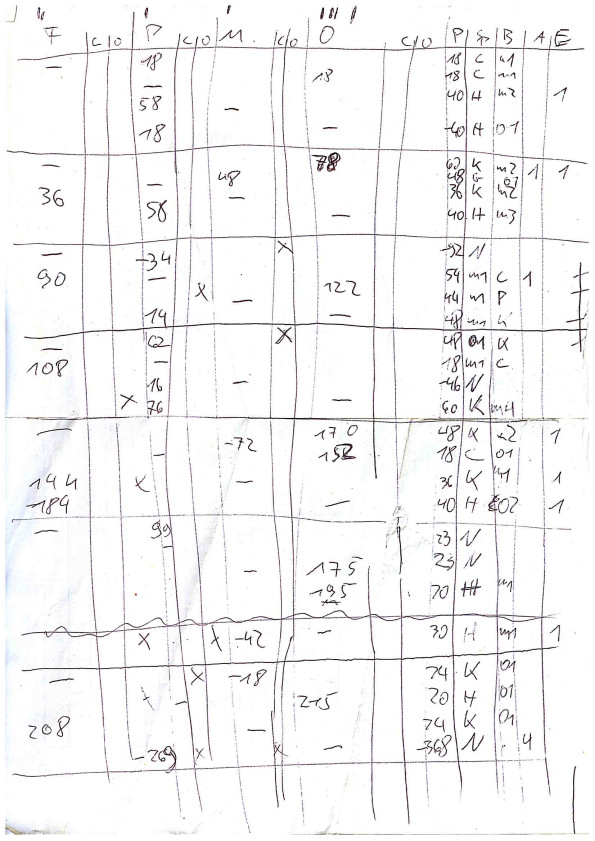 F c/o P c/o M. c/o O c/o P B A E
— 18 18 C m1
18 18 C m1
— 40 H m2 1
58 —
18 — -40 H 01
— 78 60 K m2 1 1
48 48
36 — — 36 K m2
58 — 40 H m3
— -34 x -92 N
90 — 122 54 m1 C 1
x — 44 m P
14 — 48
— 62 x 48 01 K
108 — 18 m1 C
16 — -46 N
x 76 — 60 K m4
— -72 170 48 K 2 1
— 152 18 C 01
144 x — 36 K m1 1
-184 — 40 H 02 1
— 99 23 N
— 23 N
— 175
195 70 H m1
x x -42 — 30 H m1 1
— x -18 74 K 01
— 215 20 H 01
208 — 74 K 01
-269 x x — -368 N 4